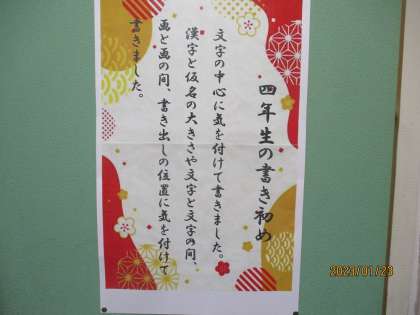 四年生の書き初め
文字の中心に気を付けて書きました。
漢字と仮名の大きさや文字と文字の間、
画と画の間、書き出しの位置に気を付けて
書きました。
2023/01/23